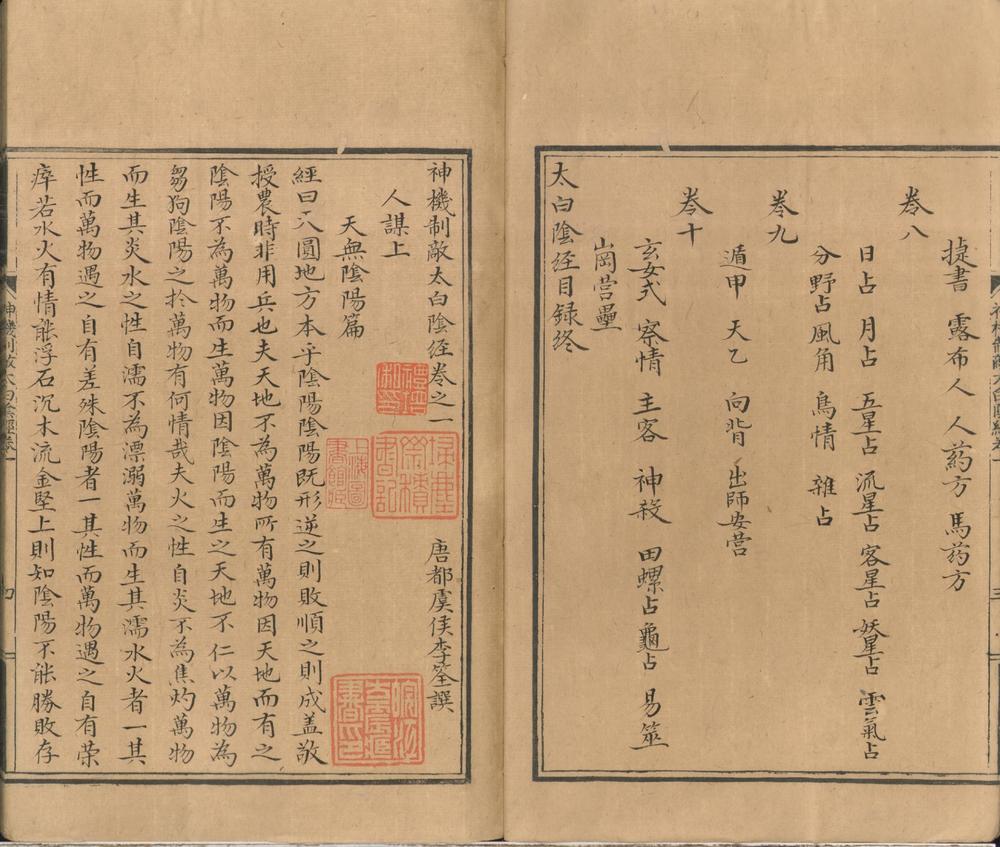 捷書 露布人 人葯方 馬葯方
卷八
日占 月占 五星占 流星占 客星占 妖星占 雲氣占
分野占 風角 鳥情 雜占
卷九
遁甲 天乙 向背 出師安营
卷十
玄女式 察情 主客 神殺 田螺占 龜占 易筮
山岡营壘
太白陰经目録终
神機制敵太白陰经卷之一 唐都虞侯李筌譔
人謀上
天無陰陽篇
經曰天圓地方本乎陰陽陰陽既形逆之則敗順之則成盖敬
授農時非用兵也夫天地不為萬物所有萬物因天地而有之
陰陽不為萬物而生萬物因陰陽而生之天地不仁以萬物為
芻狗陰陽之於萬物有何情哉夫火之性自炎不為焦灼萬物
而生其炎水之性自濡不為漂溺萬物而生其濡水火者一其
性而萬物遇之自有差殊陰陽者一其性而萬物遇之自有荣
瘁若水火有情能浮石沉木流金堅上則如陰陽不能勝敗存
上海圖書館藏